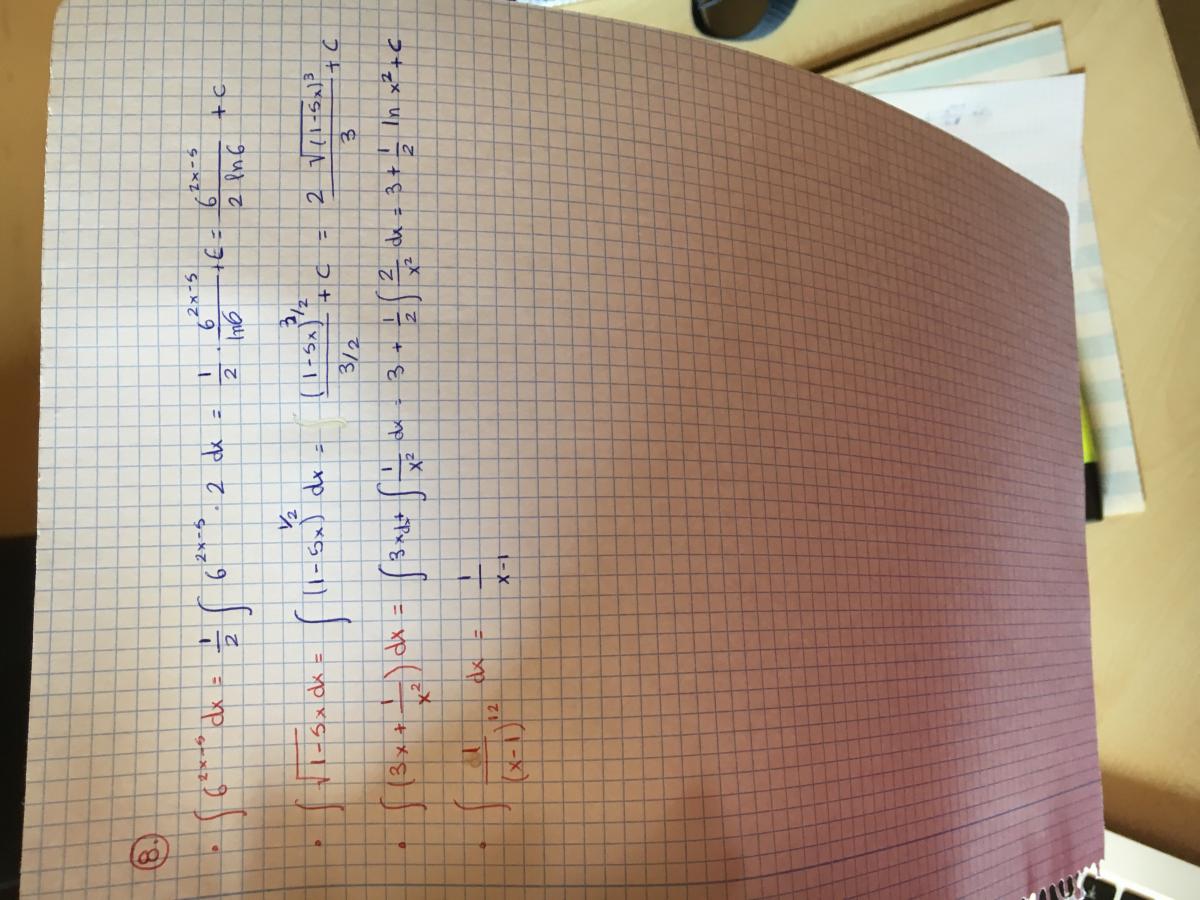 8.
• ∫ 6^(2x-5) dx = 1/2 ∫ 6^(2x-5) · 2 dx = 1/2 · 6^(2x-5)/ln6 + C = 6^(2x-5)/(2 ln6) + C
• ∫ √(1-5x) dx = ∫ (1-5x)^(1/2) dx = (1-5x)^(3/2)/(3/2) + C = 2 √((1-5x)^3)/3 + C
• ∫ (3x + 1/x^2) dx = ∫ 3x dx + ∫ 1/x^2 dx = 3 + 1/2 ∫ 2/x^2 dx = 3 + 1/2 ln x^2 + C
• ∫ d1/(x-1)^12 dx = 1/(x-1)